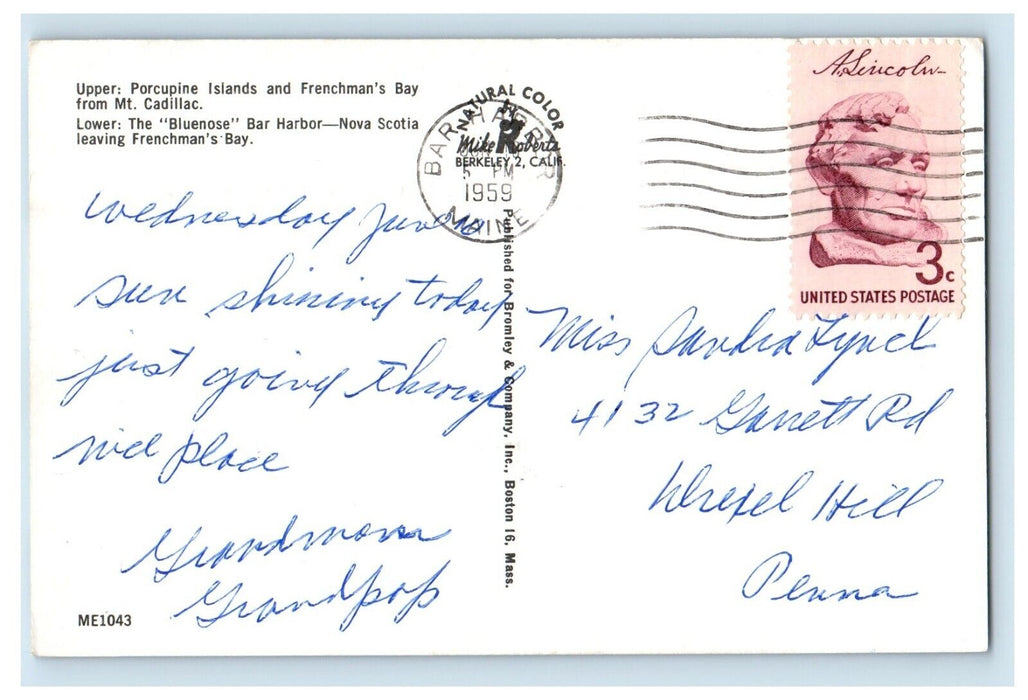 Upper: Porcupine Islands and Frenchman's Bay
from Mt. Cadillac.
Lower: The "Bluenose" Bar Harbor—Nova Scotia
leaving Frenchman's Bay.
NATURAL COLOR
by
Mike Roberts
BERKELEY 2, CALIF.
BAR HARBOR
5 PM
1959
MAINE
A. Lincoln
3c
UNITED STATES POSTAGE
Wednesday June
sun shining today
just going through
nice place
Grandmom
Grandpop
Published for Bromley & Company, Inc., Boston 16, Mass.
Miss Sandra Lynch
4132 Garrett Rd
Drexel Hill
Penna
ME1043